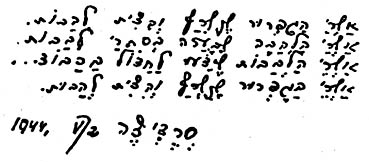 אַשְׁרֵי הַגַּפְרוּר שֶׁנִּשְׂרַף וְהִצִּית לֶהָבוֹת.
אַשְׁרֵי הַלֶּהָבָה שֶׁבָּעֲרָה בְּסִתְרֵי לְבָבוֹת.
אַשְׁרֵי הַלְּבָבוֹת שֶׁיָּדְעוּ לַחְדוֹל בְּכָבוֹד...
אַשְׁרֵי הַגַּפְרוּר שֶׁנִּשְׂרַף וְהִצִּית לֶהָבוֹת.
סֶרְדִיצֶה 1944,